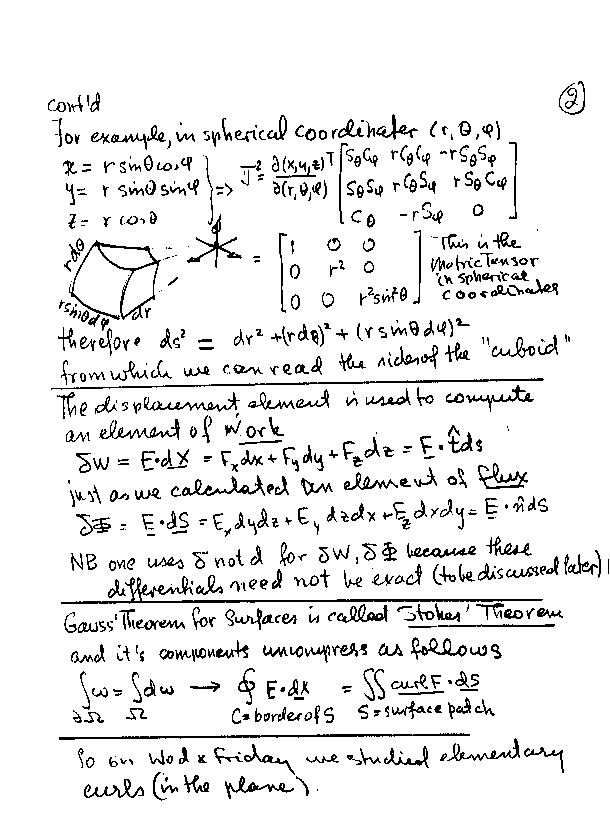 cont'd
②
For example, in spherical coordinates (r, θ, φ)
x = r sinθ cosφ
y = r sinθ sinφ
z = r cosθ
⇒ J² = ∂(x,y,z)ᵀ / ∂(r,θ,φ) [SθCφ rCθCφ -rSθSφ
SθSφ rCθSφ rSθCφ
Cθ -rSφ 0]
rdθ
rsinθdφ
dr
= [1 0 0
0 r² 0
0 0 r²sin²θ]
This is the
Metric Tensor
in spherical
coordinates
therefore ds² = dr² + (rdθ)² + (r sinθ dφ)²
from which we can read the sides of the "cuboid"
The displacement element is used to compute
an element of Work
δW = F·dX = Fₓdx + F_y dy + F_z dz = F·t̂ds
just as we calculated an element of flux
δΦ = E·dS = Eₓdydz + E_y dzdx + E_z dxdy = E·n̂dS
NB one uses δ not d for δW, δΦ because these
differentials need not be exact (to be discussed later)
Gauss' Theorem for Surfaces is called Stokes' Theorem
and it's components uncompress as follows
∫ω = ∫dω → ∮ F·dX = ∬ curl F·dS
∂Ω Ω C = border of S S = surface patch
So on Wed & Friday we studied elementary
curls (in the plane).